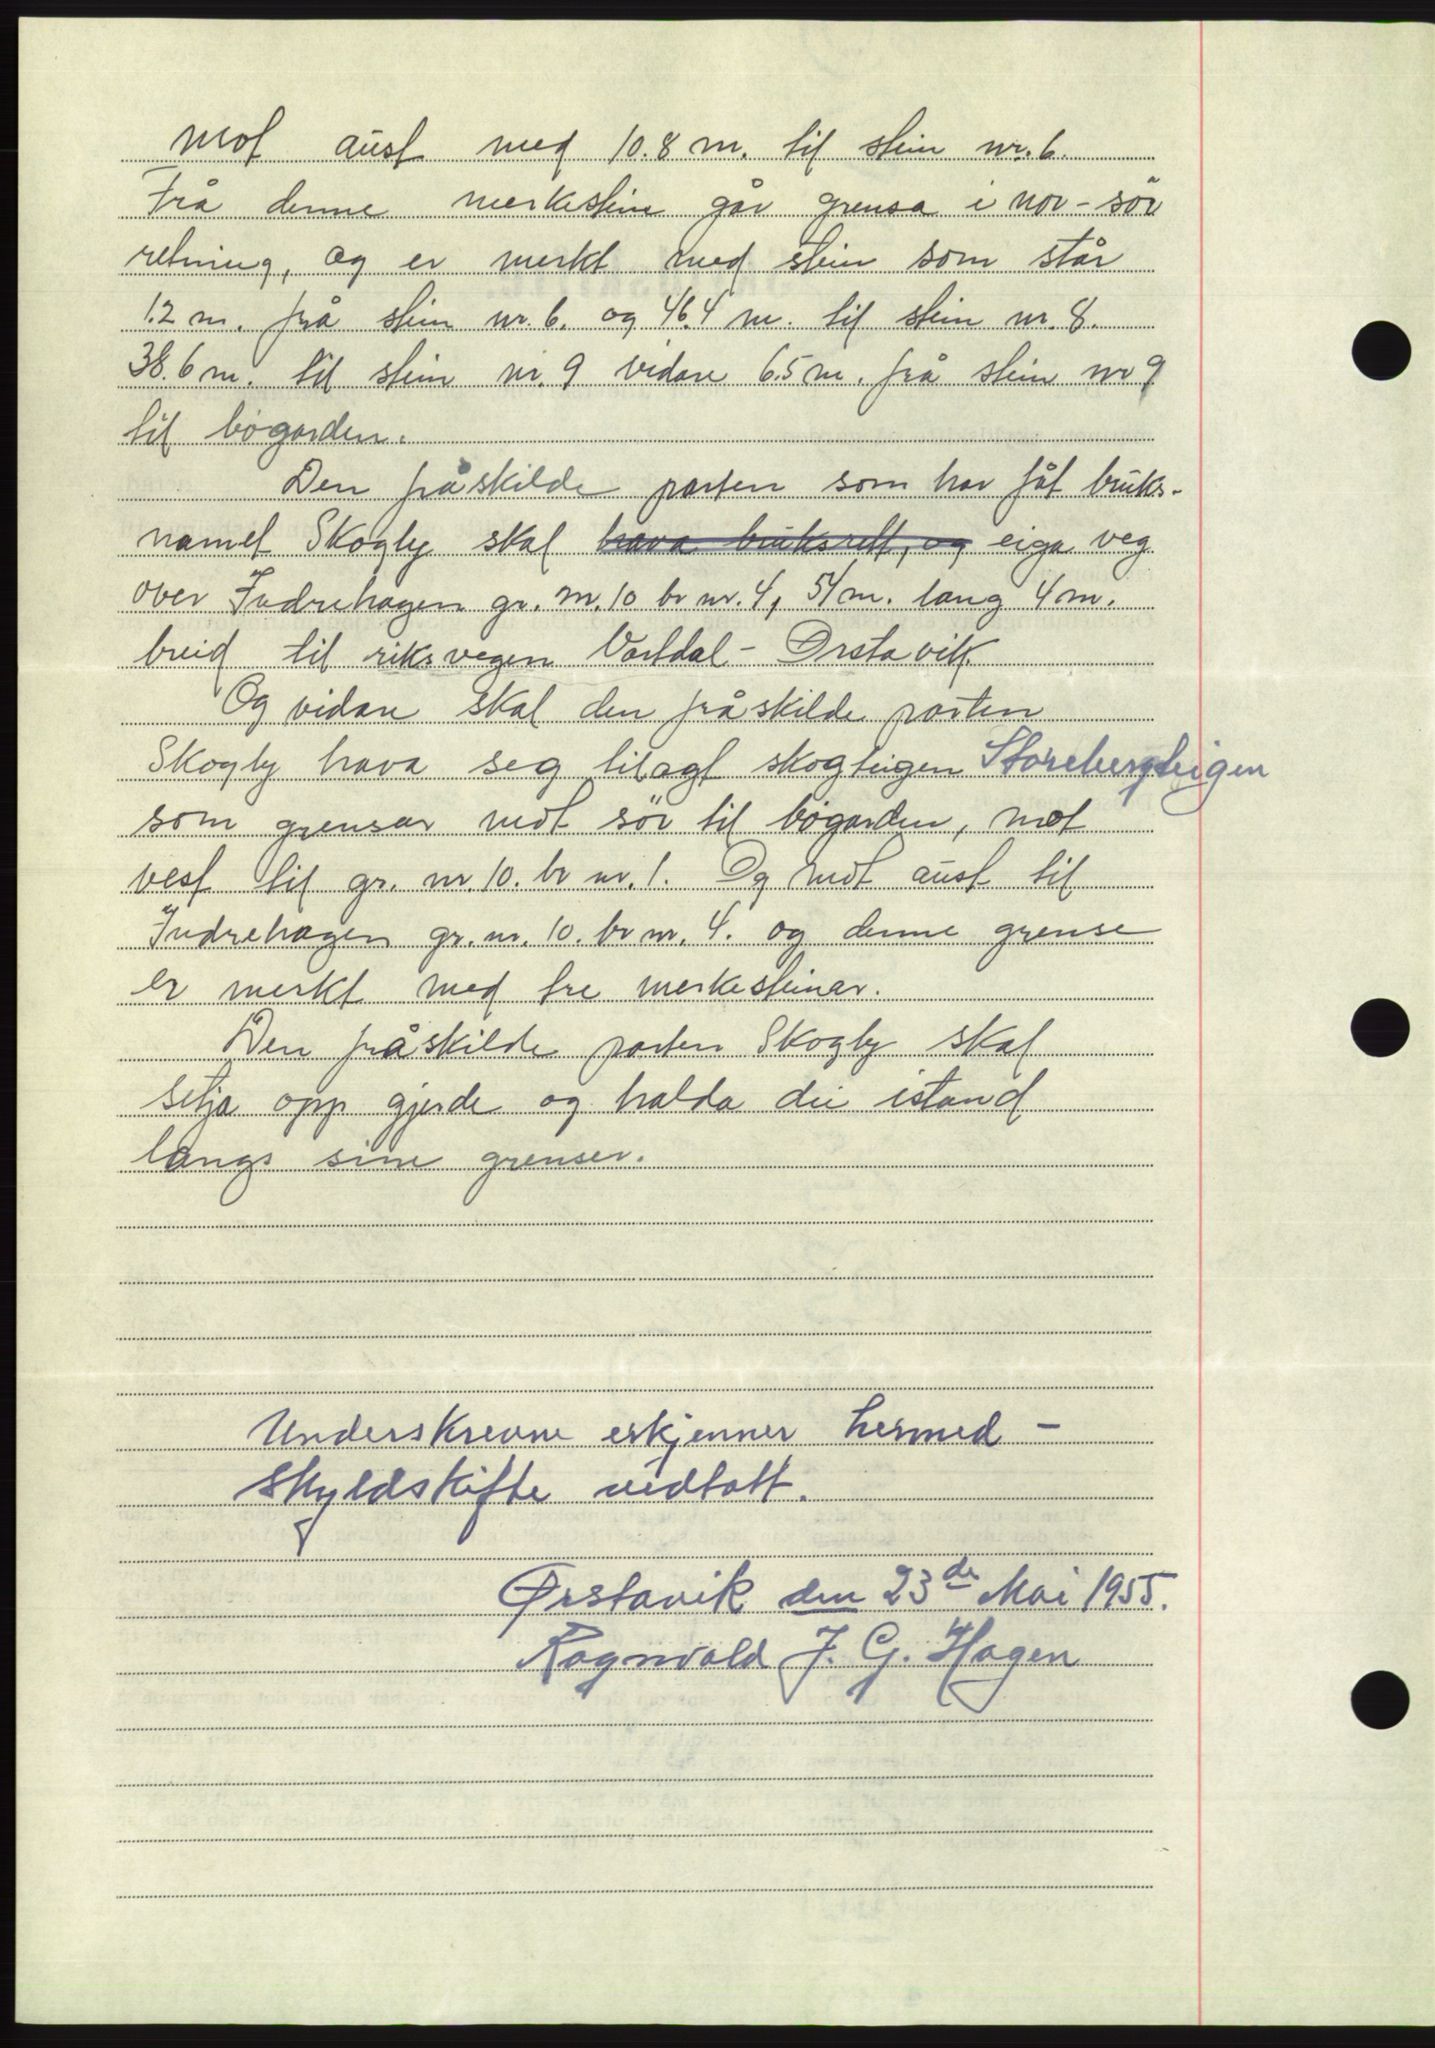 mot aust med 10.8 m. til stein nr. 6.
Frå denne merkestein går grensa i nor - sör
retning, og er merkt med stein som står
1.2 m. frå stein nr. 6. og 46.4 m. til stein nr. 8.
38.6 m. til stein nr. 9 vidare 6.5 m. frå stein nr 9
til bøgarden.
Den fråskilde parten som har fåt bruks-
namet Skogly skal hava bruksrett, og eiga veg
over Indrehagen gr. nr. 10 br nr. 4, 51 m. lang 4 m.
breid til riksvegen Vartdal - Ørstavik.
Og vidare skal den fråskilde parten
Skogly hava seg tilagt skogteigen Storebergteigen
som grensar mot sör til bøgarden, mot
vest til gr. nr. 10. br nr. 1. Og mot aust til
Indrehagen gr. nr. 10. br nr. 4. og denne grense
er merkt med tre merkesteinar.
Den fråskilde parten Skogly skal
setja opp gjerde og halda dei istand
langs sine grenser.
Underskrevne erkjenner hermed -
Skyldskifte vidtatt.
Ørstavik den 23de Mai 1955.
Ragnvald J. G. Hagen